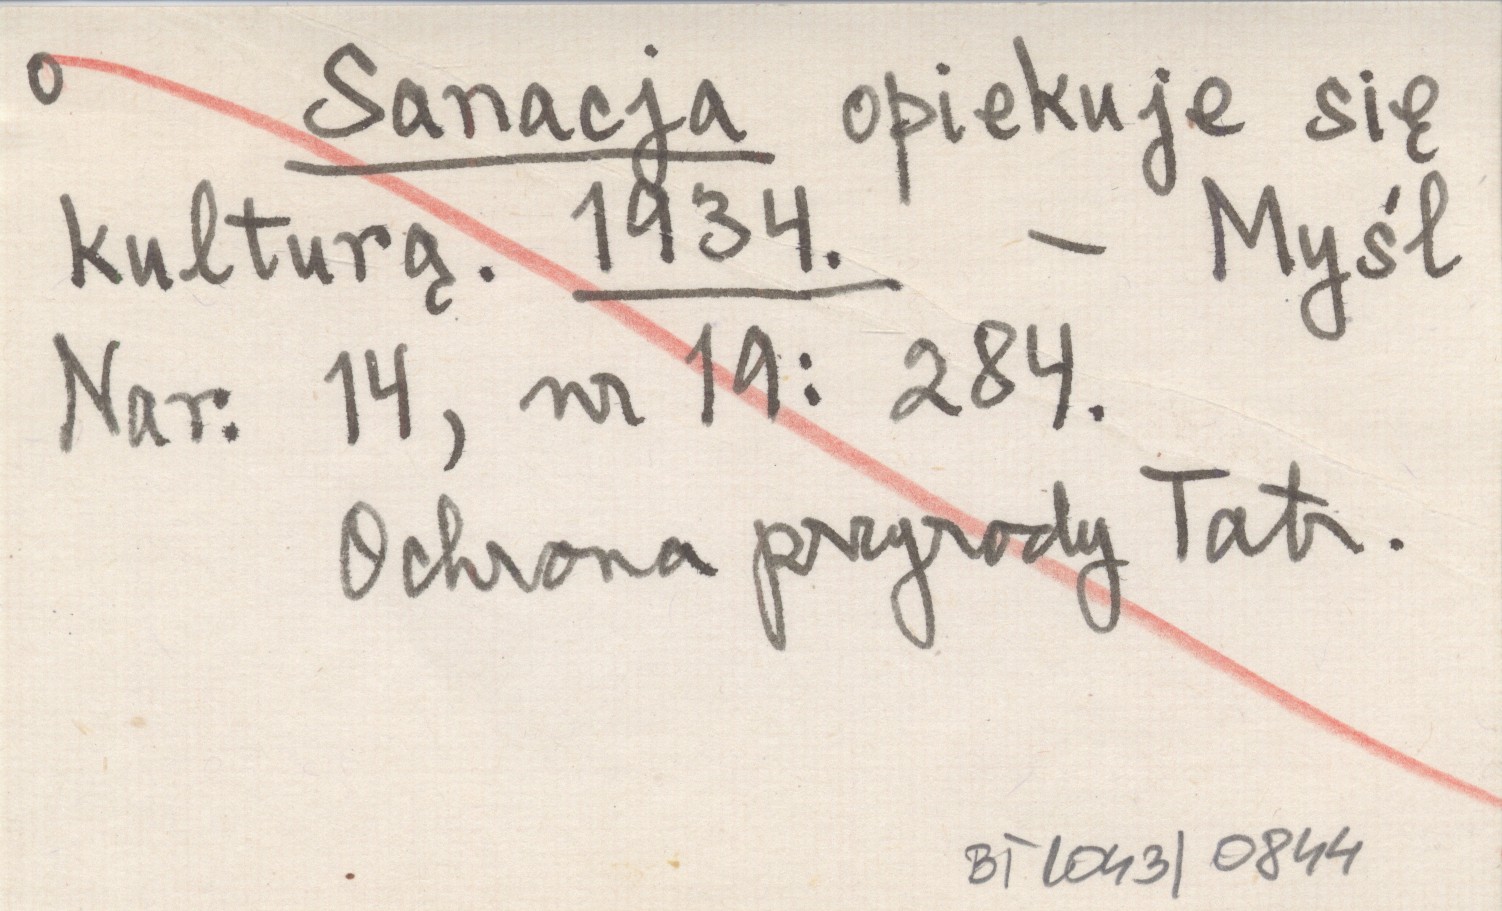 o Sanacja opiekuje się
kulturą. 1934. – Myśl
Nar. 14, nr 19: 284.
Ochrona przyrody Tatr.
BT 1043/ 0844